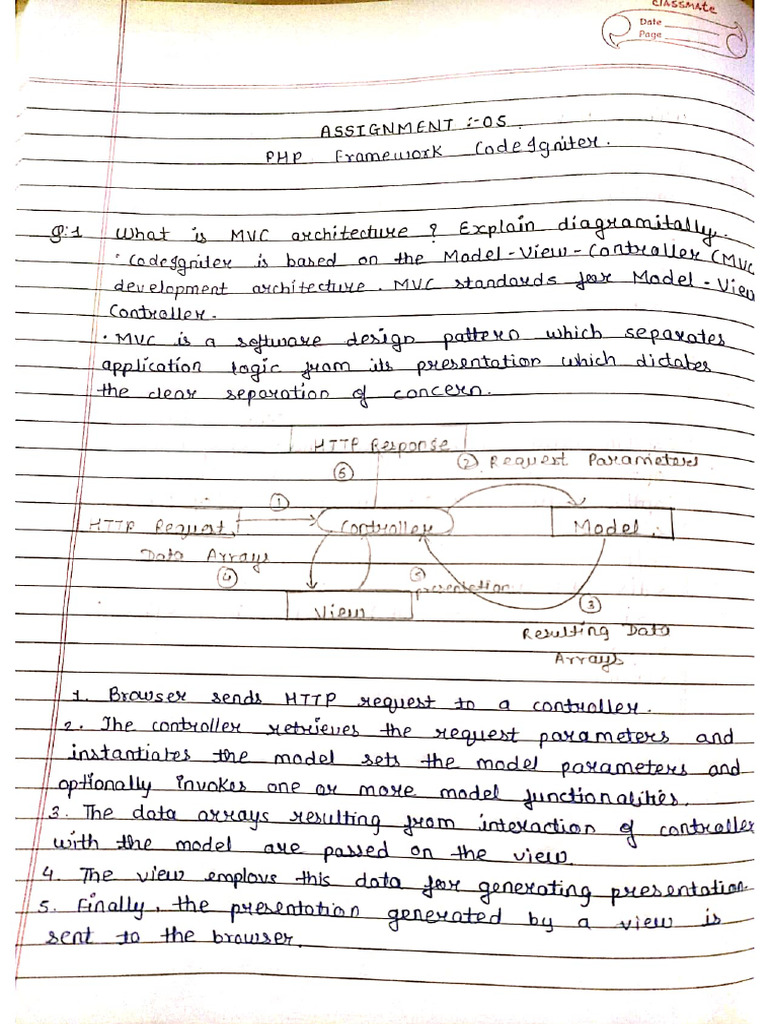 classmate
Date
Page
ASSIGNMENT :- 05.
PHP Framework CodeIgniter.
Q:1 What is MVC architecture ? Explain diagramitally.
· CodeIgniter is based on the Model - View - Controller (MVC
development architecture. MVC standards for Model - View
Controller.
· MVC is a software design pattern which separates
application logic from its presentation which dictates
the clear separation of concern.
HTTP Response
② Request Parameters
⑥
①
HTTP Request
Controller
Model.
Data Arrays
④
presentation
View
③
Resulting Data
Arrays
1. Browser sends HTTP request to a controller.
2. The controller retrieves the request parameters and
instantiates the model sets the model parameters and
optionally invokes one or more model functionalities.
3. The data arrays resulting from interaction of controller
with the model are passed on the view.
4. The view employs this data for generating presentation.
5. Finally, the presentation generated by a view is
sent to the browser.